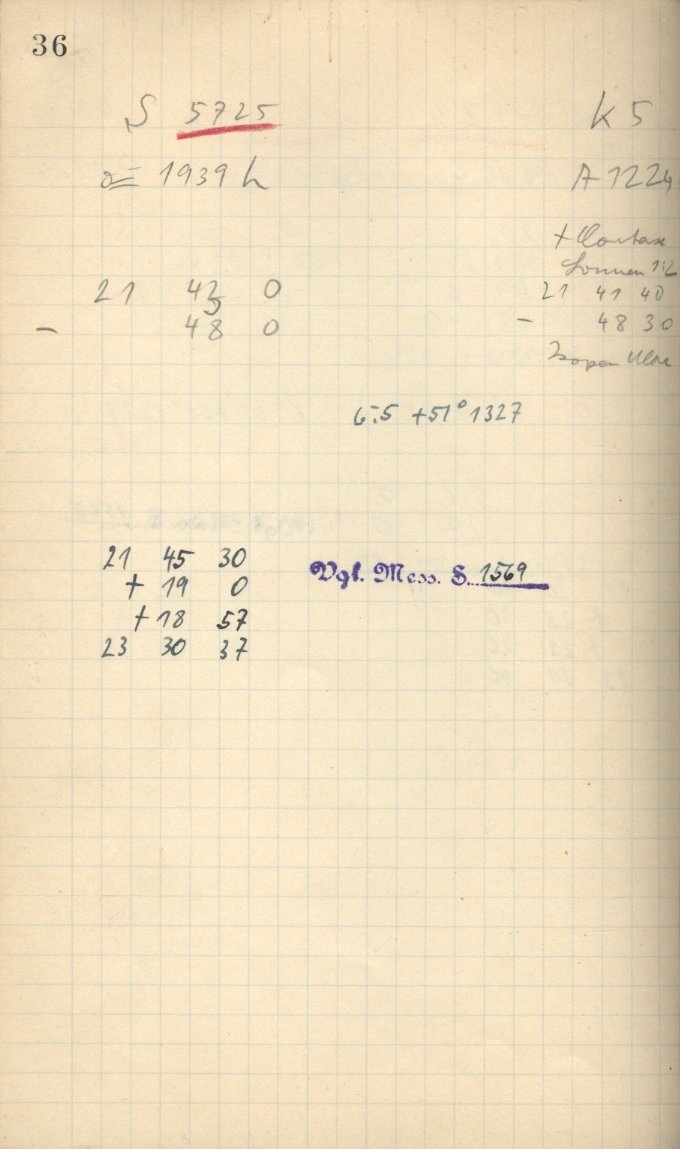 36
S 5725
K 5
1939 h
A 1224
21 43 0
- 48 0
+ Contax
Sonnar 1:2
21 41 40
- 48 30
Isopan
6.5 +51° 1327
21 45 30
+ 19 0
+ 18 57
23 30 37
Vgl. Mess. S. 1569